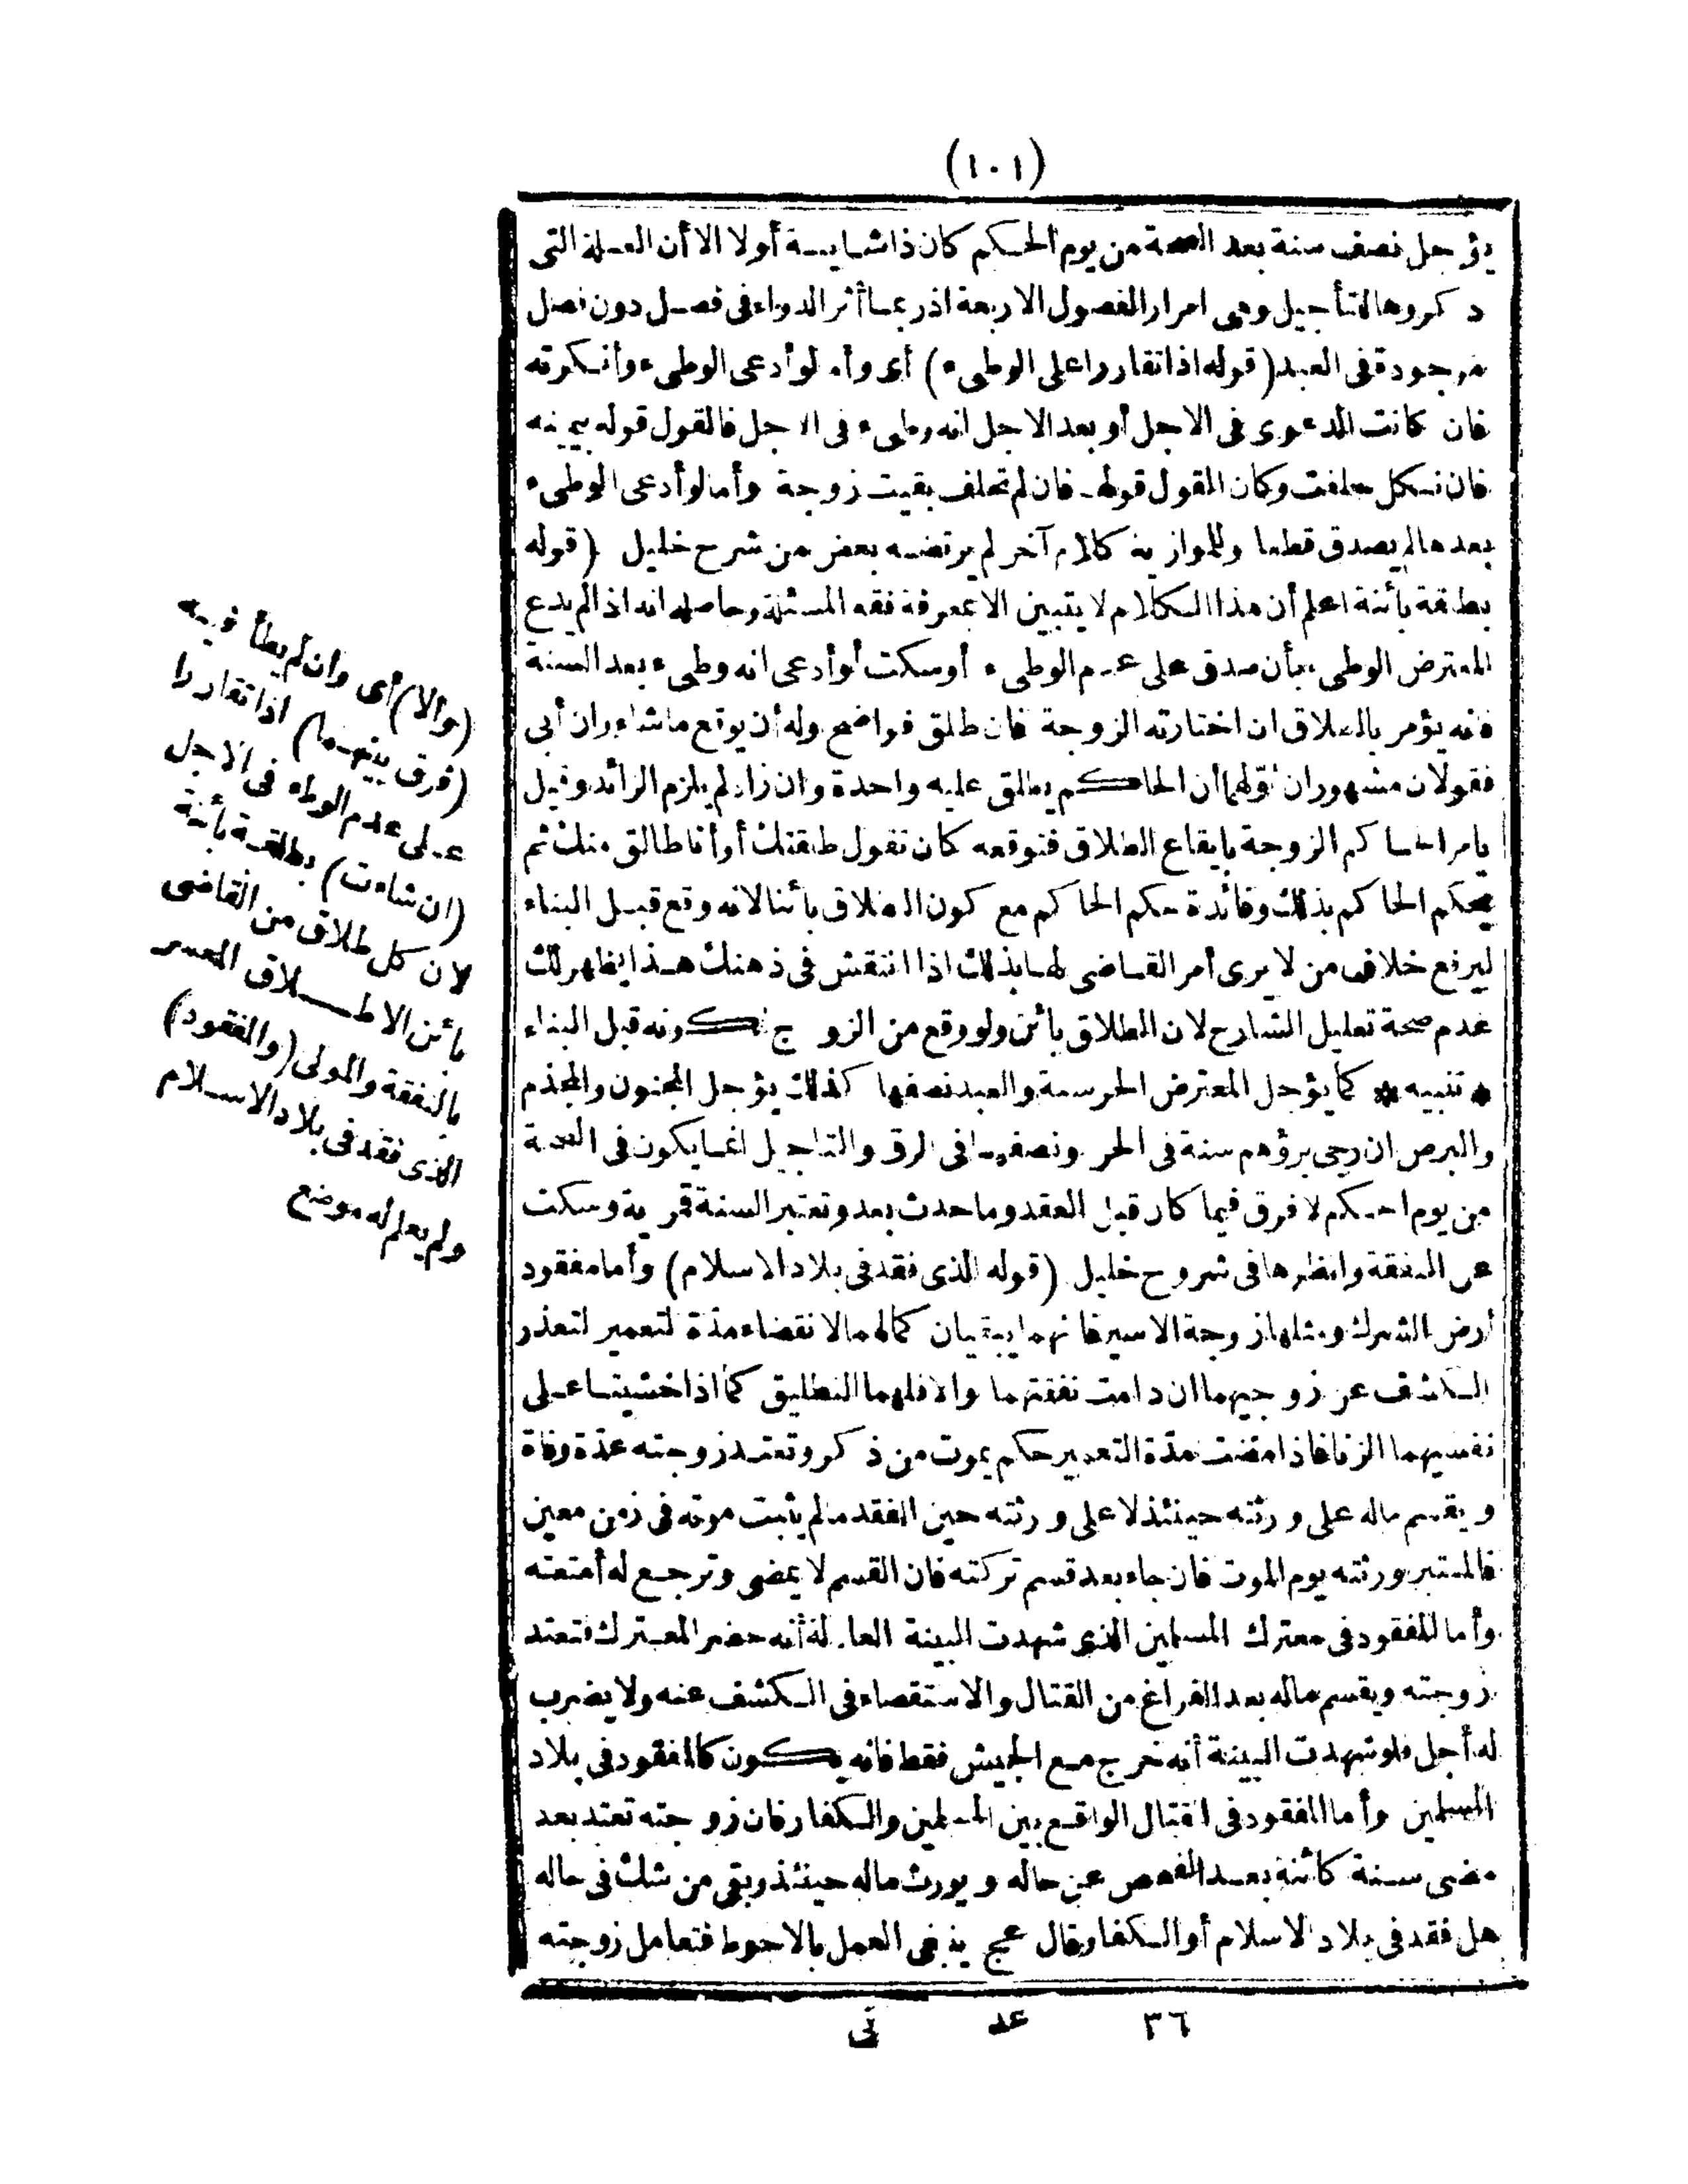 (١٠١)
يؤجل نصف سنة بعد الصحة من يوم الحكم كان ذا شابيبة أولا الا أن العلة التى
ذكروها للتأجيل وهى امرار الفصول الاربعة اذ ربما أثر الدواء فى فصل دون فصل
موجودة فى العبد (قوله اذا تقاررا على الوطىء) أى وأما لو أدعى الوطىء وأنكرته
فان كانت الدعوى فى الاجل أو بعد الاجل انه وطىء فى الاجل فالقول قوله بيمينه
فان نكل حلفت وكان القول قولها فان لم تحلف بقيت زوجة وأما لو أدعى الوطىء
بعدها لم يصدق قطعا وللموازية كلام آخر لم يرتضه بعض من شرح خليل (قوله
بطلقة بائنة اعلم أن هذا الكلام لا يتبين الا بمعرفة فقه المسئلة وحاصله انه اذا لم يدع
المعترض الوطىء بأن صدق على عدم الوطىء أو سكت أو أدعى انه وطىء بعد السنة
فانه يؤمر بالطلاق ان اختارته الزوجة فان طلق فواضح وله أن يوقع ما شاء وان أبى
فقولان مشهوران أولهما أن الحاكم يطلق عليه واحدة وان زاد لم يلزم الزائد وقيل
يامر الحاكم الزوجة بايقاع الطلاق فتوقعه كان تقول طلقتك أو أنا طالق منك ثم
يحكم الحاكم بذلك وفائدة حكم الحاكم مع كون الطلاق بائنا لانه وقع قبل البناء
ليرفع خلاف من لا يرى أمر القاضى لها بذلك اذا انتقش فى ذهنك هذا يظهر لك
عدم صحة تعليل الشارح لان الطلاق بائن ولو وقع من الزوج لكونه قبل البناء
* تنبيه * كما يؤجل المعترض الحر سنة والعبد نصفها كذلك يؤجل المجنون والمجذم
والبرص ان رجى برؤهم سنة فى الحر ونصفها فى الرق والتاجيل انما يكون فى الصحة
من يوم الحكم لا فرق فيما كان قبل العقد وما حدث بعد وتعتبر السنة قمرية وسكت
عن النفقة وانظرها فى شروح خليل (قوله الذى فقد فى بلاد الاسلام) وأما مفقود
أرض الشرك ومثلها زوجة الاسير فانهما يبقيان كمالهما لانقضاء مدة لتعمير لتعذر
الكشف عن زوجيهما ان دامت نفقتهما والا فلهما التطليق كما اذا خشيتا على
نفسيهما الزنا فاذا مضت مدة التعمير حكم بموت من ذكر وتعتد زوجته عدة وفاة
ويقسم ماله على ورثته حينئذ لا على ورثته حين الفقد ما لم يثبت موته فى زمن معين
فالمعتبر ورثته يوم الموت فان جاء بعد قسم تركته فان القسم لا يمضى وترجع له أمتعته
وأما المفقود فى معترك المسلمين الذى شهدت البينة العادلة أنه حضر المعترك فتعتد
زوجته ويقسم ماله بعد الفراغ من القتال والاستقصاء فى الكشف عنه ولا يضرب
له أجل فلو شهدت البينة أنه خرج مع الجيش فقط فانه يكون كالمفقود فى بلاد
المسلمين وأما المفقود فى القتال الواقع بين المسلمين والكفار فان زوجته تعتد بعد
مضى سنة كائنة بعد الفحص عن حاله ويورث ماله حينئذ وبقى من شك فى حاله
هل فقد فى بلاد الاسلام أو الكفار وقال عج ينبغى العمل بالاحوط فتعامل زوجته
٣٦ عد نى
(والا) أى وان لم يطأ فيه
(فرق بينهما) اذا تقاررا
على عدم الوطء فى الاجل
(ان شاءت) بطلقة بائنة
لان كل طلاق من القاضى
بائن الا طلاق المعسر
بالنفقة والمولى (والمفقود)
الذى فقد فى بلاد الاسلام
ولم يعلم له موضع